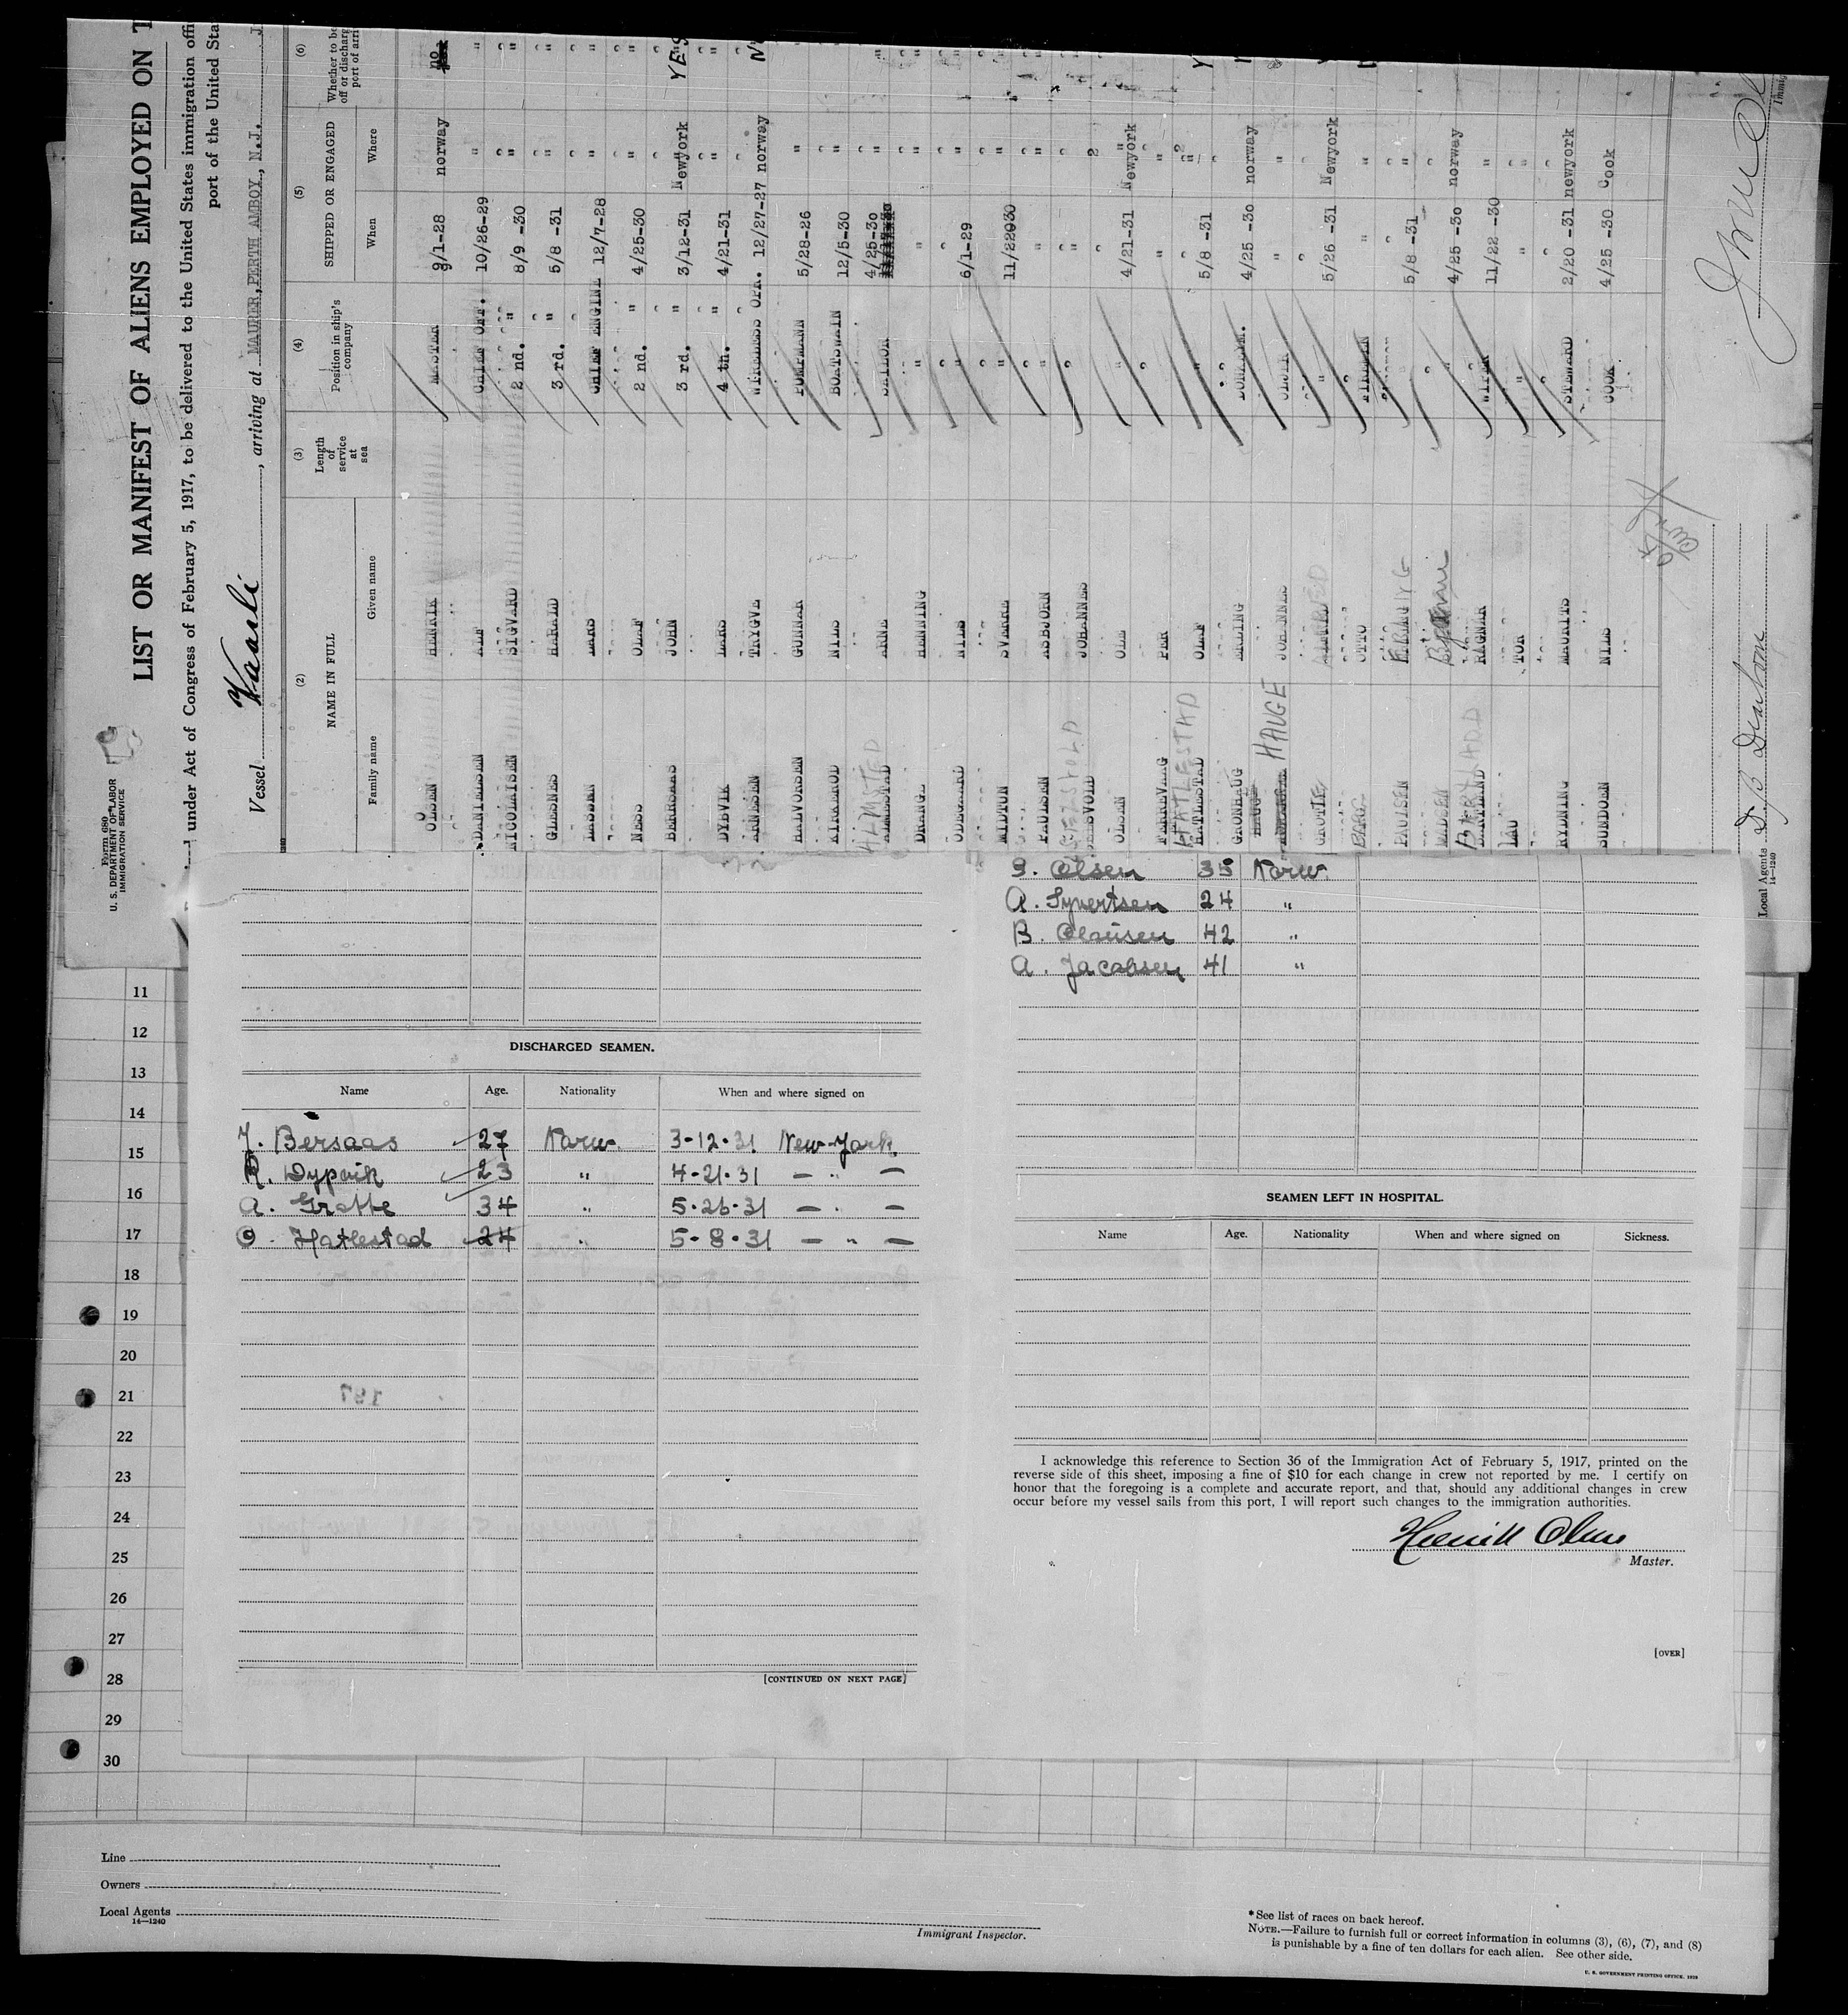 Form 680
U. S. DEPARTMENT OF LABOR
IMMIGRATION SERVICE
LIST OR MANIFEST OF ALIENS EMPLOYED ON T
under Act of Congress of February 5, 1917, to be delivered to the United States immigration offi
port of the United Sta
Vessel Vardi, arriving at MAURER, PERTH AMBOY, N.J.
(2) (3) (4) (5) (6)
NAME IN FULL Length of service at sea Position in ship's company SHIPPED OR ENGAGED Whether to be off or discharg port of arri
Family name Given name When Where
OLSEN HENRIK MASTER 9/1-28 norway no
DANIELSEN ALF CHIEF OFF. 10/26-29 " "
NICOLAISEN SIGVARD 2 nd. " 8/9 -30 " "
GLESNES HARALD 3 rd. " 5/8 -31 " "
LARS CHIEF ENGINE 12/7-28 " "
NESS OLAF 2 nd. " 4/25-30 " "
BERSAAS JOHN 3 rd. " 3/12-31 Newyork YES
DYBVIK LARS 4 th. " 4/21-31 " "
ARNESEN TRYGVE WIRELESS OPR. 12/27-27 norway
HALVORSEN GUNNAR PUMPMANN 5/28-26 " "
KIRKEROD NILS BOATSWAIN 12/5-30 " "
ALMESTAD ALMSTED ARNE SAILOR 4/25-30 " "
DRANGE HENNING " " "
ODEGAARD NILS " 6/1-29 "
MIDTUN SVERRE " 11/22030 "
PAULSEN ASBJORN " " "
JOHANNES " "
OLSEN OLE " 4/21-31 Newyork
PER " " "
HATLESTAD HATLESTAD OLAF " 5/8 -31 "
GRONHAUG ERLING DONKEYM. 4/25 -30 norway
HAUGE JOHANNES OILER " "
GROTTE ALFRED " 5/26 -31 Newyork
BERG OTTO FIREMAN " "
PAULSEN HENRY G " 5/8 -31 "
MADSEN Bjarni " 4/25 -30 norway
RAGNAR WIPER 11/22 -30 "
LAU TOR " " "
RYDNING MAURITS STEWARD 2/20 -31 newyork
SUNDOEN NILS COOK 4/25 -30 Cook
Local Agents
14—1240
11
12
13
14
15
16
17
18
19
20
21
22
23
24
25
26
27
28
29
30
DISCHARGED SEAMEN.
Name Age. Nationality When and where signed on
J. Bersaas 27 Norw. 3-12-31 New-York
R. Dypvik 23 " 4-21-31 — " —
A. Grotte 34 " 5-26-31 — " —
O. Hatlestad 24 " 5-8-31 — " —
[CONTINUED ON NEXT PAGE]
G. Olsen 35 Norw.
A. Syvertsen 24 "
B. Clausen 42 "
A. Jacobsen 41 "
SEAMEN LEFT IN HOSPITAL.
Name Age. Nationality When and where signed on Sickness.
I acknowledge this reference to Section 36 of the Immigration Act of February 5, 1917, printed on the
reverse side of this sheet, imposing a fine of $10 for each change in crew not reported by me. I certify on
honor that the foregoing is a complete and accurate report, and that, should any additional changes in crew
occur before my vessel sails from this port, I will report such changes to the immigration authorities.
Henrik Olsen
Master.
[OVER]
Line
Owners
Local Agents
14—1240
Immigrant Inspector.
* See list of races on back hereof.
NOTE.—Failure to furnish full or correct information in columns (3), (6), (7), and (8)
is punishable by a fine of ten dollars for each alien. See other side.
U. S. GOVERNMENT PRINTING OFFICE. 1929